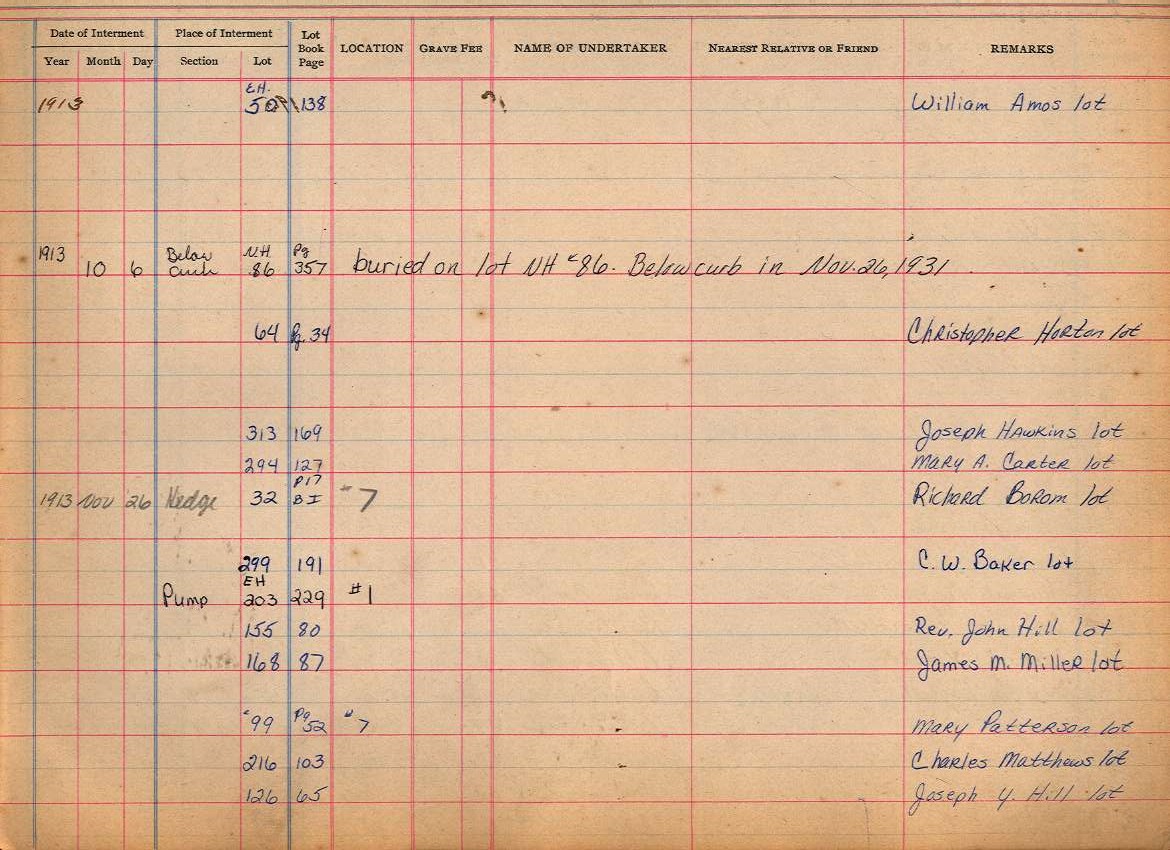 Date of Interment Place of Interment Lot Book Page LOCATION GRAVE FEE NAME OF UNDERTAKER NEAREST RELATIVE OR FRIEND REMARKS
Year Month Day Section Lot
EH.
1913 138 William Amos lot
1913 Below NH Pg
10 6 curb 86 357 buried on lot NH "86. Below curb in Nov. 26, 1931
64 Pg. 34 Christopher Horton lot
313 169 Joseph Hawkins lot
294 127 Mary A. Carter lot
P17
1913 Nov 26 Hedge 32 BI "7 Richard Borom lot
299 191 C. W. Baker lot
EH
Pump 203 229 #1
155 80 Rev. John Hill lot
168 87 James M. Miller lot
"99 Pg 52 "7 Mary Patterson lot
216 103 Charles Matthews lot
126 65 Joseph Y. Hill lot